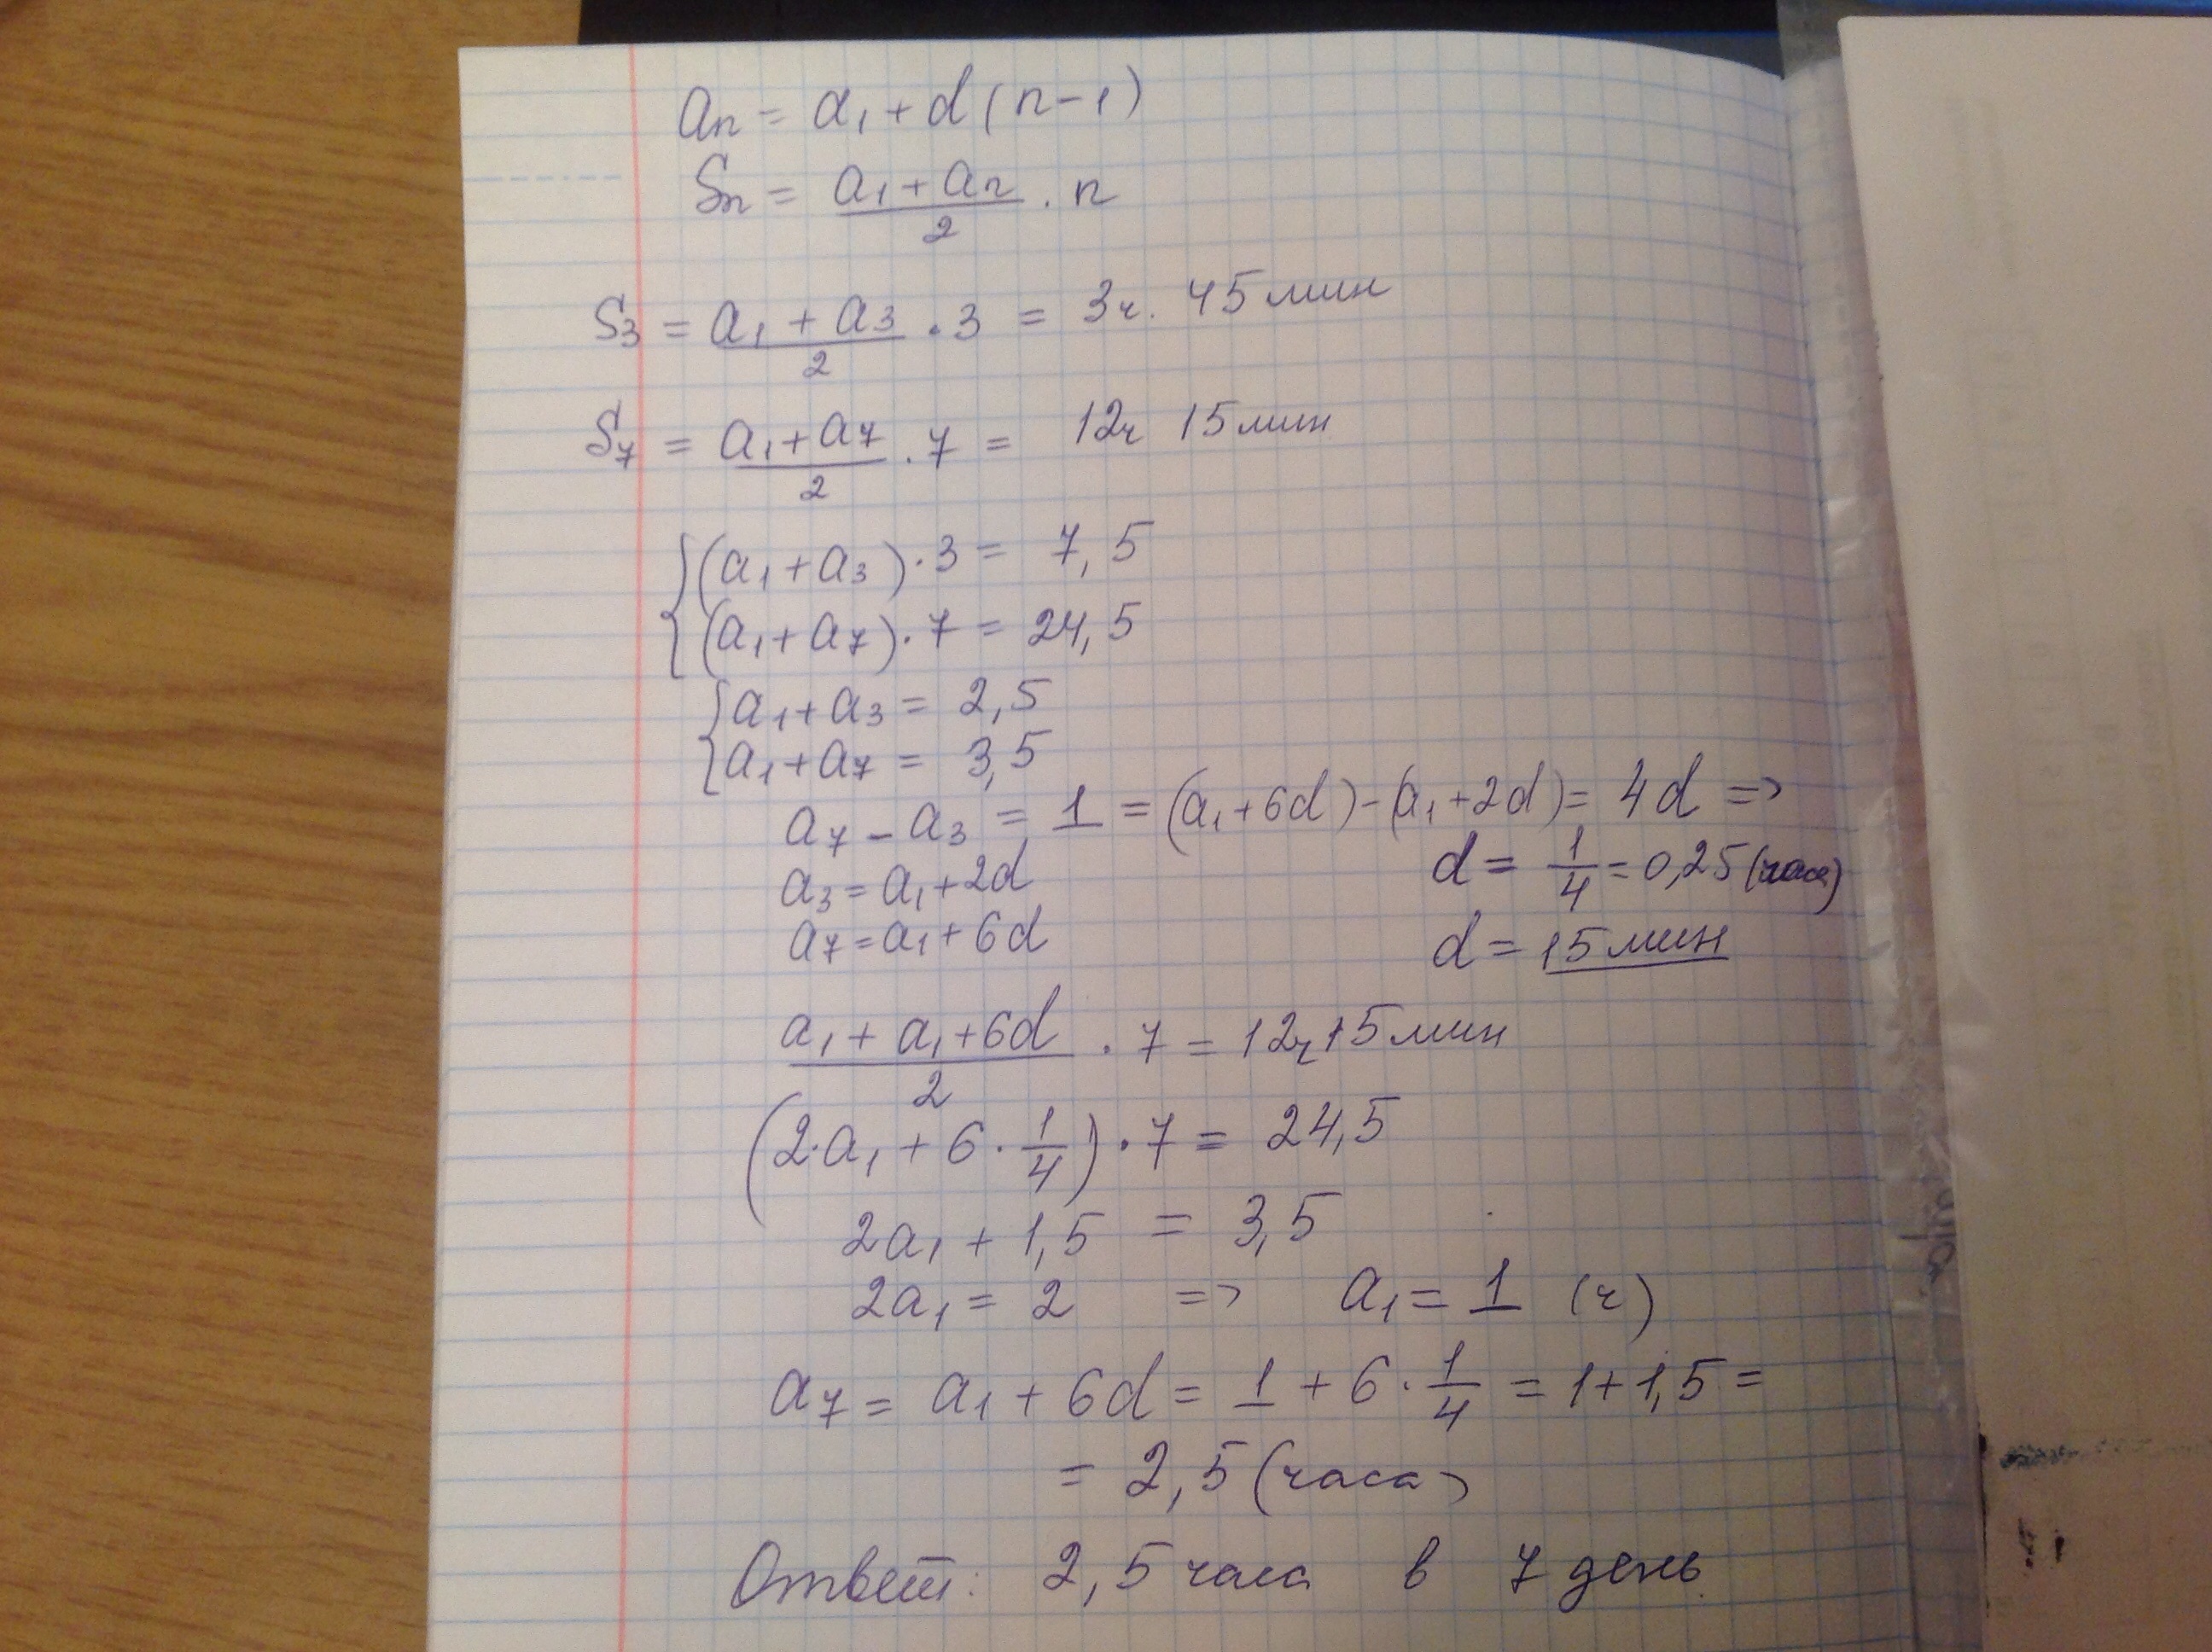 aₙ = a₁ + d(n-1)
Sₙ = (a₁ + aₙ)/2 · n
S₃ = (a₁ + a₃)/2 · 3 = 3ч. 45 мин
S₇ = (a₁ + a₇)/2 · 7 = 12ч 15 мин
{(a₁ + a₃)·3 = 7,5
(a₁ + a₇)·7 = 24,5
{a₁ + a₃ = 2,5
a₁ + a₇ = 3,5
a₇ - a₃ = 1 = (a₁ + 6d) - (a₁ + 2d) = 4d =>
a₃ = a₁ + 2d
d = 1/4 = 0,25 (часа)
a₇ = a₁ + 6d
d = 15 мин
(a₁ + a₁ + 6d)/2 · 7 = 12ч 15 мин
(2·a₁ + 6 · 1/4) · 7 = 24,5
2a₁ + 1,5 = 3,5
2a₁ = 2 => a₁ = 1 (ч)
a₇ = a₁ + 6d = 1 + 6 · 1/4 = 1 + 1,5 =
= 2,5 (часа)
Ответ: 2,5 часа в 7 день.